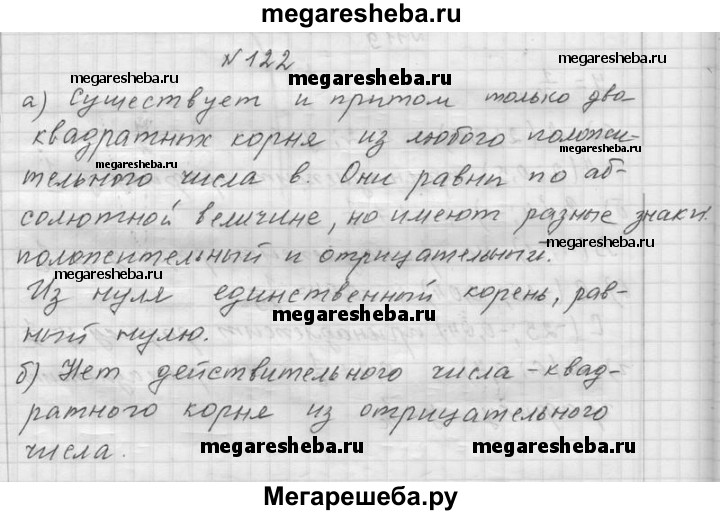 megaresheba.ru
№122
megaresheba.ru megaresheba.ru
а) Существует и притом только два
квадратных корня из любого положи-
megaresheba.ru
megaresheba.ru
тельного числа в. Они равны по аб-
солютной величине, но имеют разные знаки:
положительный и отрицательный.
megaresheba.ru
megaresheba.ru
Из нуля единственный корень, рав-
megaresheba.ru
ный нулю.
б) Нет действительного числа - квад-
ратного корня из отрицательного
числа.
megaresheba.ru megaresheba.ru
Мегарешеба.ру